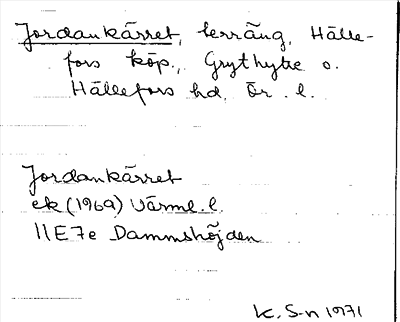 Jordankärret, terräng, Hälle-
fors köp., Grythytte o.
Hällefors hd, Ör. l.
Jordankärret
ek (1969) Värml. l.
11E7e Dammshöjden
K. S-n 1971